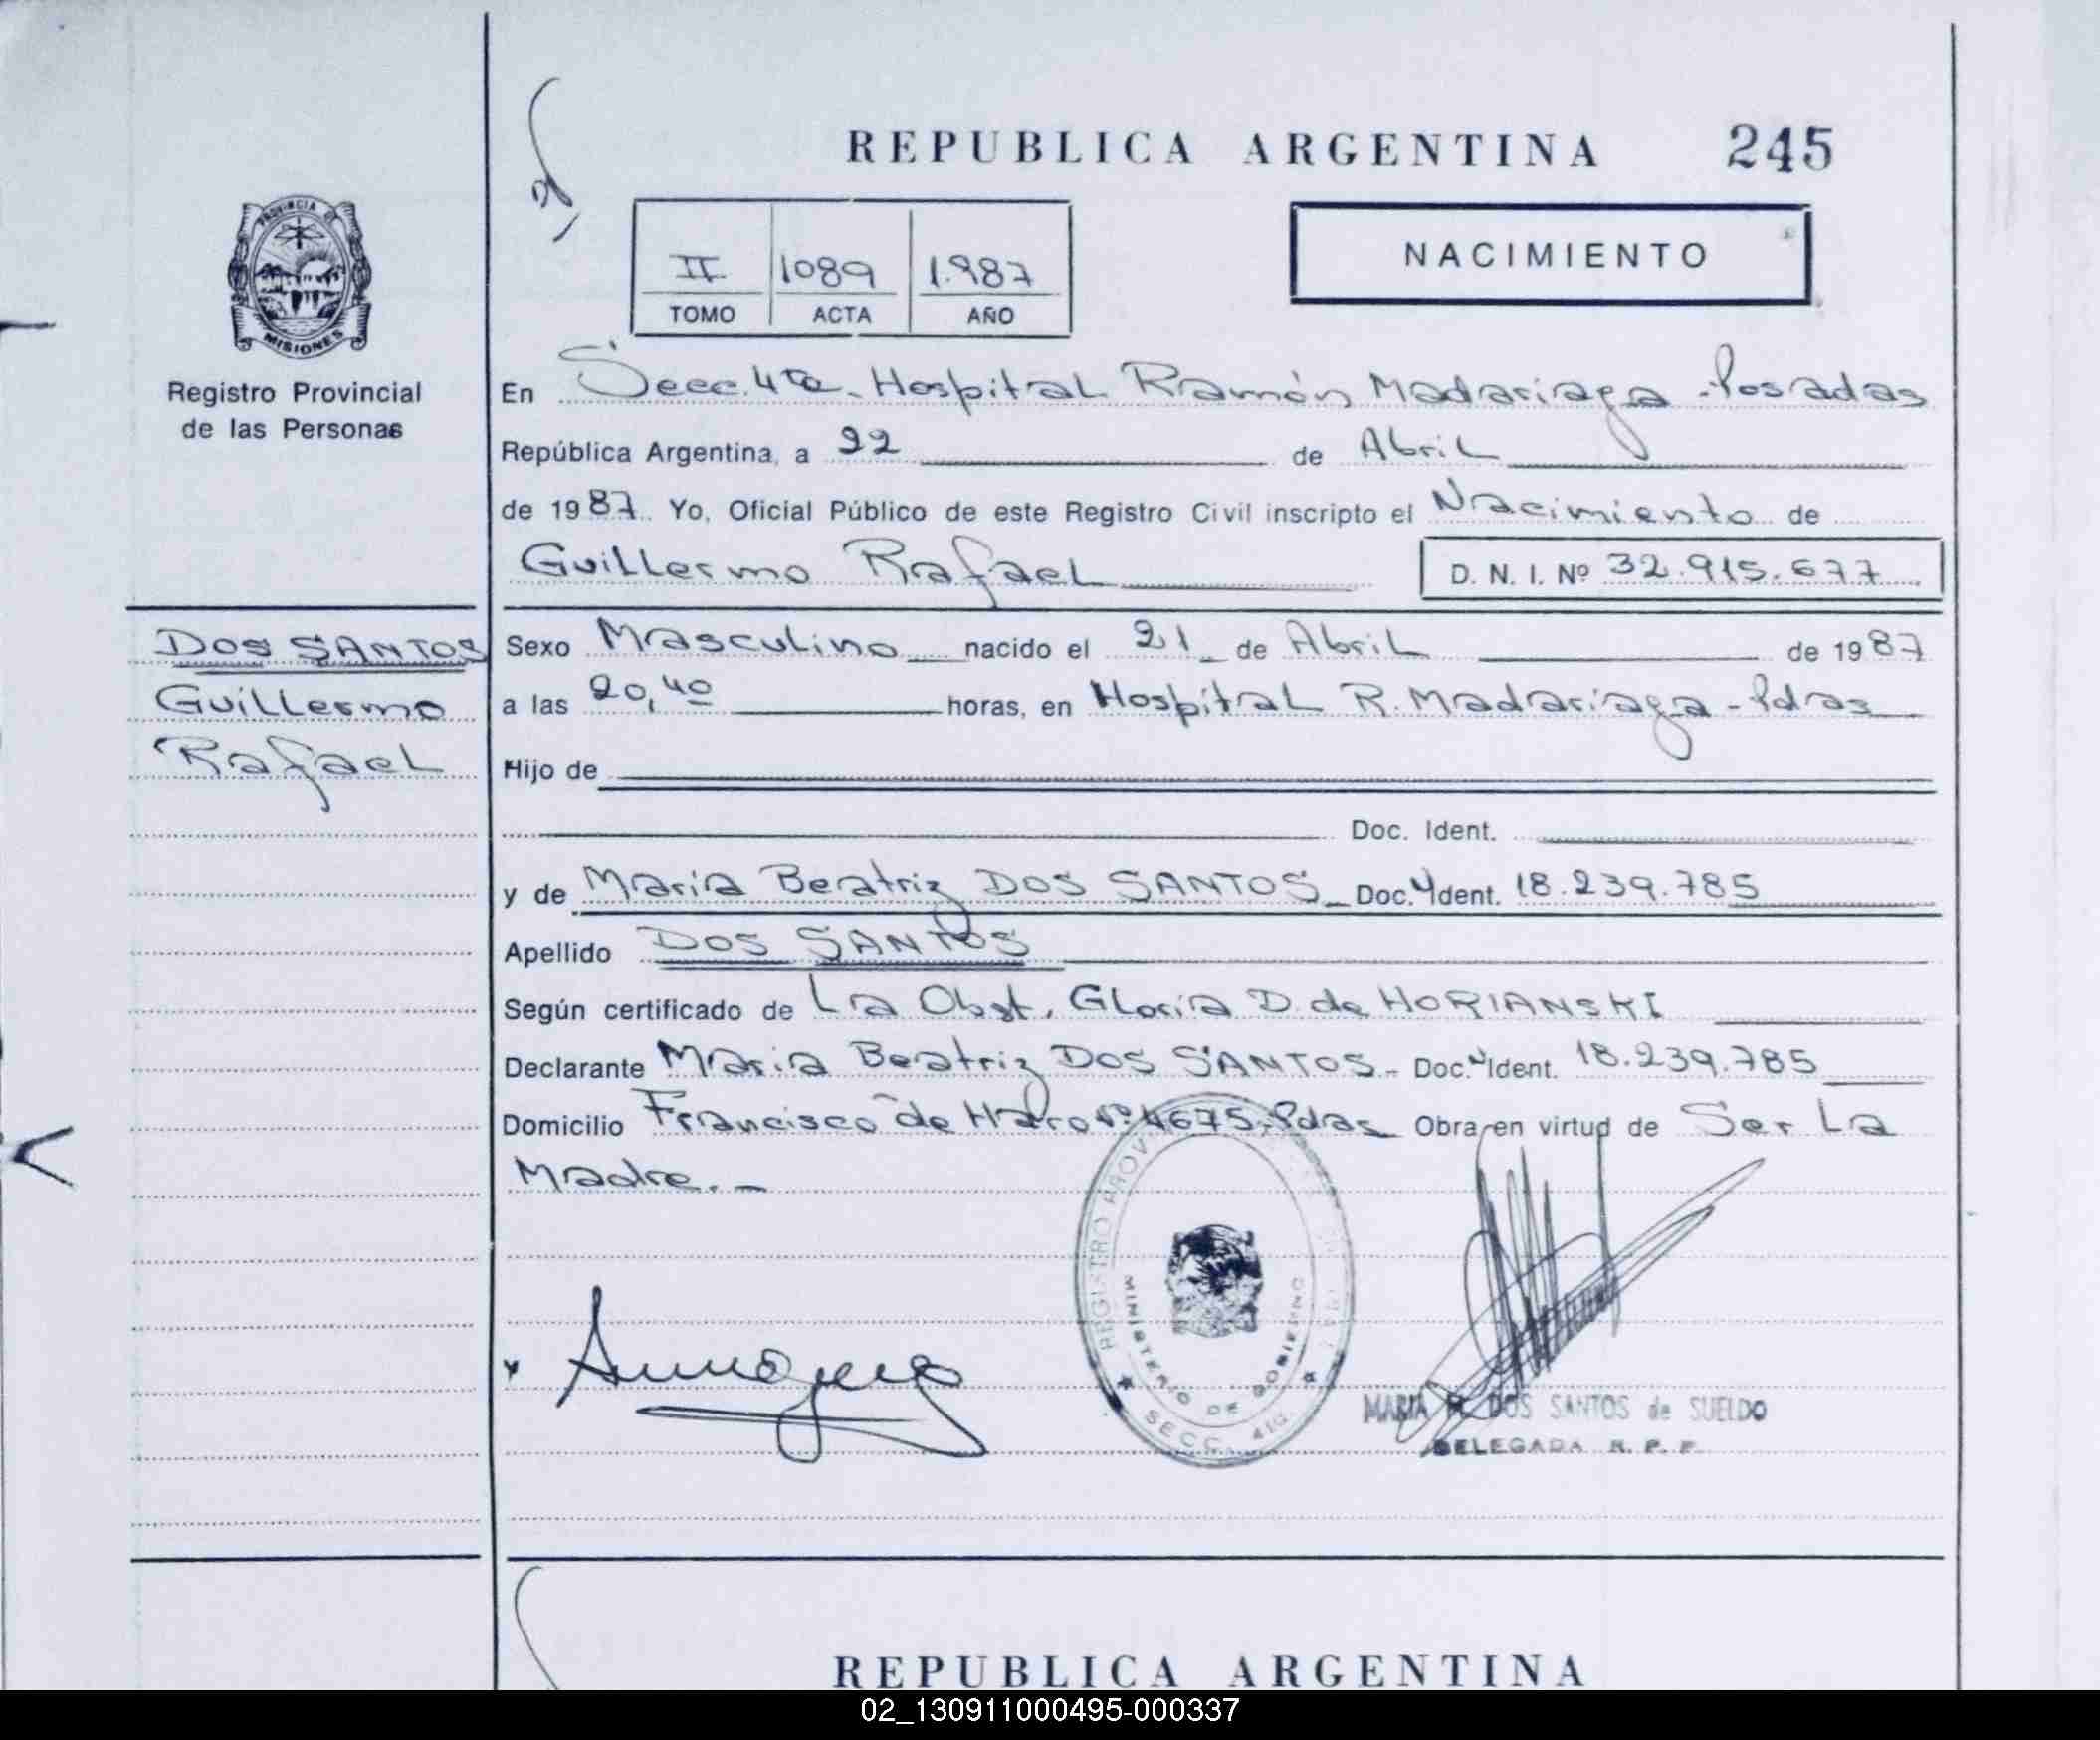 REPUBLICA ARGENTINA 245
II 1089 1.987
TOMO ACTA AÑO
NACIMIENTO
PROVINCIA DE
MISIONES
Registro Provincial
de las Personas
En Secc. 4ta. Hospital Ramón Madariaga - Posadas
República Argentina, a 22 de Abril
de 1987. Yo, Oficial Público de este Registro Civil inscripto el Nacimiento de
Guillermo Rafael D. N. I. Nº 32.915.677
DOS SANTOS
Guillermo
Rafael
Sexo Masculino nacido el 21 de Abril de 1987
a las 20,40 horas, en Hospital R. Madariaga - Pdas
Hijo de
Doc. Ident.
y de María Beatriz DOS SANTOS Doc. Ident. 18.239.785
Apellido DOS SANTOS
Según certificado de La Obst. Gloria D. de HORIANSKI
Declarante María Beatriz DOS SANTOS - Doc. Ident. 18.239.785
Domicilio Francisco de Haro Nº 4675, Pdas Obra en virtud de Ser La
Madre. -
REGISTRO PROV
MINISTERIO DE GOBIERNO
SECC. 4ta.
MARIA DOS SANTOS de SUELDO
DELEGADA R. P. P.
REPUBLICA ARGENTINA
02_130911000495-000337